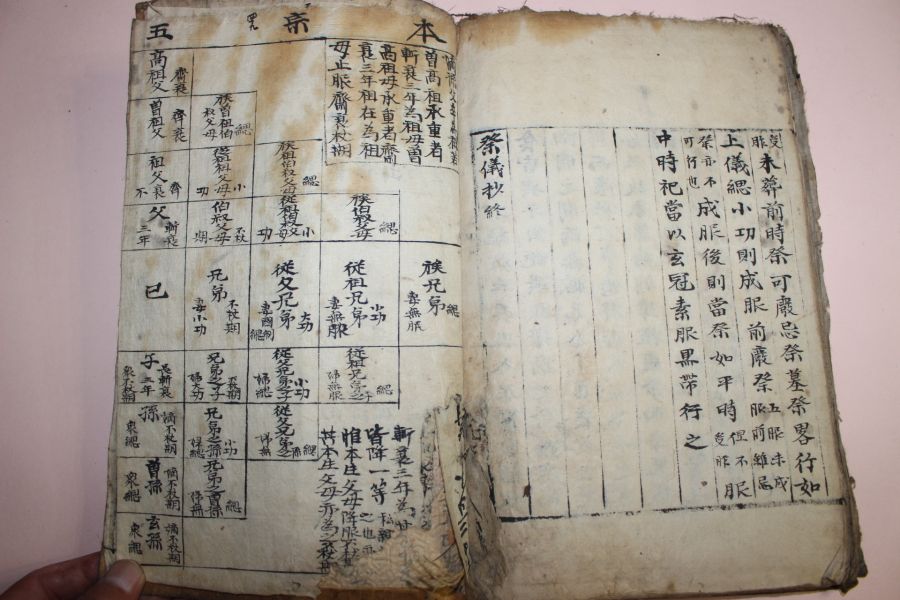 受胙未葬前時祭可廢忌祭墓祭畧行如
上儀緦小功則成服前廢祭五服未成服前雖忌
祭亦不可行也成服後則當祭如平時但不受胙服
中時祀當以玄冠素服黑帶行之
祭儀抄終
本宗五
曽高祖承重者
斬衰三年為祖母曽
高祖母承重者齊
衰三年祖在為祖
母止服齊衰杖期
高祖父 齊衰
曽祖父 齊衰
族曽祖伯叔父母 緦
祖父 齊衰不
從祖祖父母 小功
族祖伯叔父母 緦
父 斬衰三年
伯叔父母 不杖期
從祖伯叔父母 小功
族伯叔父母 緦
己
兄弟 不杖期 妻小功
從父兄弟 大功 妻 緦
從祖兄弟 小功 妻無服
族兄弟 緦 妻無服
子 長斬衰三年 衆不杖期
兄弟之子 不杖期 婦大功
從父兄弟之子 小功 婦緦
從祖兄弟之子 緦 婦無服
孫 嫡不杖期 衆緦
兄弟之孫 小功 婦緦
從父兄弟之孫 緦 婦無
曽孫 嫡不杖期 衆緦
兄弟之曽孫 緦 婦無
玄孫 嫡不杖期 衆緦
斬衰三年為
皆降一等
惟本生父母降服不杖
其本生父母亦為之